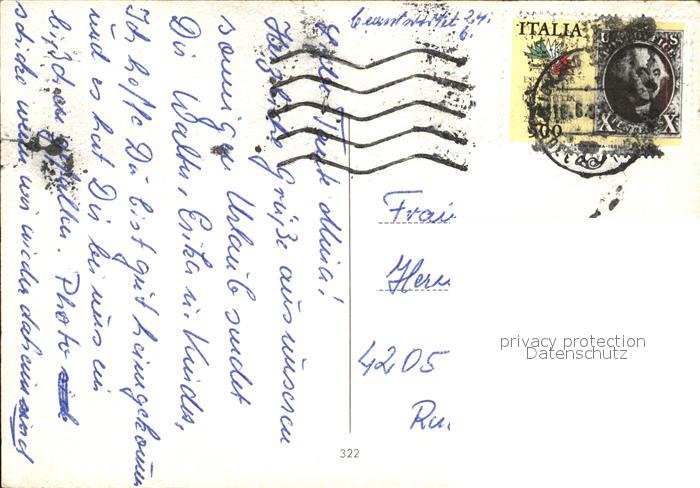 beantwortet 24.
6.
ITALIA
500
Liebe Tante Mina!
Herzliche Grüße aus unserem
sonnigen Urlaub sendet
Dir Walter, Erika u. Kinder,
Ich hoffe Du bist gut heimgekommen
und es hat Dir bei uns ein
bißchen gefallen. Photo
schicke wenn wir wieder daheim sind
Frau
4205
322
privacy protection
Datenschutz